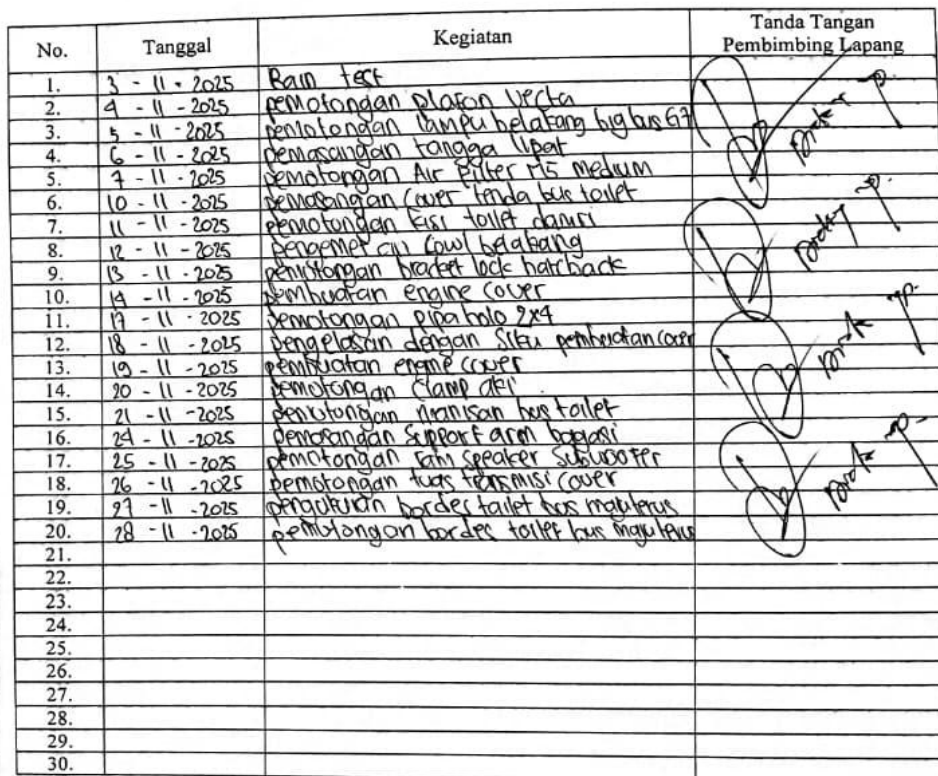 No. Tanggal Kegiatan Tanda Tangan Pembimbing Lapang
1. 3 - 11 - 2025 Rain test
2. 4 - 11 - 2025 pemotongan plafon Vecta
3. 5 - 11 - 2025 pemotongan lampu belakang big bus G7
4. 6 - 11 - 2025 pemasangan tangga lipat
5. 7 - 11 - 2025 pemotongan Air Filter medium
6. 10 - 11 - 2025 pemasangan cover tenda bus toilet
7. 11 - 11 - 2025 pemotongan kisi toilet
8. 12 - 11 - 2025 cowl belakang
9. 13 - 11 - 2025 pemotongan bracket lock hatchback
10. 14 - 11 - 2025 pembuatan engine cover
11. 17 - 11 - 2025 pemotongan pipa holo 2x4
12. 18 - 11 - 2025 pengelasan dengan siku pembuatan cover
13. 19 - 11 - 2025 pembuatan engine cover
14. 20 - 11 - 2025 pemotongan clamp aki
15. 21 - 11 - 2025 pemotongan manisan bus toilet
16. 24 - 11 - 2025 pemasangan support arm bagasi
17. 25 - 11 - 2025 pemotongan ram speaker subwoofer
18. 26 - 11 - 2025 pemotongan tuas cover
19. 27 - 11 - 2025 pengukuran bordes toilet bus
20. 28 - 11 - 2025 pemotongan bordes toilet bus
21.
22.
23.
24.
25.
26.
27.
28.
29.
30.